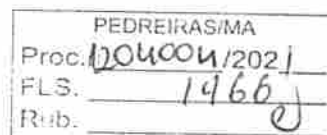 PEDREIRAS/MA
Proc. 1204004/2021
FLS. 1466
Rub.